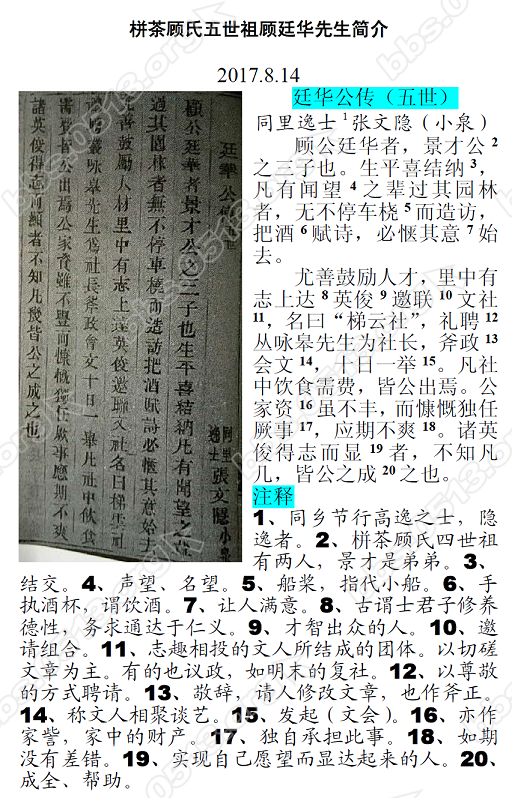 栟茶顾氏五世祖顾廷华先生简介
2017.8.14
廷华公传（五世）
同里逸士1张文隐（小泉）
顾公廷华者，景才公2
之三子也。生平喜结纳3，
凡有闻望4之辈过其园林
者，无不停车桡5而造访，
把酒6赋诗，必惬其意7始
去。
尤善鼓励人才，里中有
志上达8英俊9邀联10文社
11，名曰“梯云社”，礼聘12
丛咏皋先生为社长，斧政13
会文14，十日一举15。凡社
中饮食需费，皆公出焉。公
家资16虽不丰，而慷慨独任
厥事17，应期不爽18。诸英
俊得志而显19者，不知凡
几，皆公之成20之也。
注释
1、同乡节行高逸之士，隐
逸者。2、栟茶顾氏四世祖
有两人，景才是弟弟。3、
结交。4、声望、名望。5、船桨，指代小船。6、手
执酒杯，谓饮酒。7、让人满意。8、古谓士君子修养
德性，务求通达于仁义。9、才智出众的人。10、邀
请组合。11、志趣相投的文人所结成的团体。以切磋
文章为主。有的也议政，如明末的复社。12、以尊敬
的方式聘请。13、敬辞，请人修改文章，也作斧正。
14、称文人相聚谈艺。15、发起（文会）。16、亦作
家訾，家中的财产。17、独自承担此事。18、如期
没有差错。19、实现自己愿望而显达起来的人。20、
成全、帮助。
廷華公傳
同里逸士張文隱小泉
顧公廷華者景才公之三子也生平喜結納凡有聞望之輩
過其園林者無不停車橈而造訪把酒賦詩必愜其意始去
尤善鼓勵人材里中有志上達英俊邀聯文社名曰梯雲社
禮聘叢咏皋先生為社長斧政會文十日一舉凡社中飲食
需費皆公出焉公家資雖不豐而慷慨獨任厥事應期不爽
諸英俊得志而顯者不知凡幾皆公之成之也
bbs.0513.org